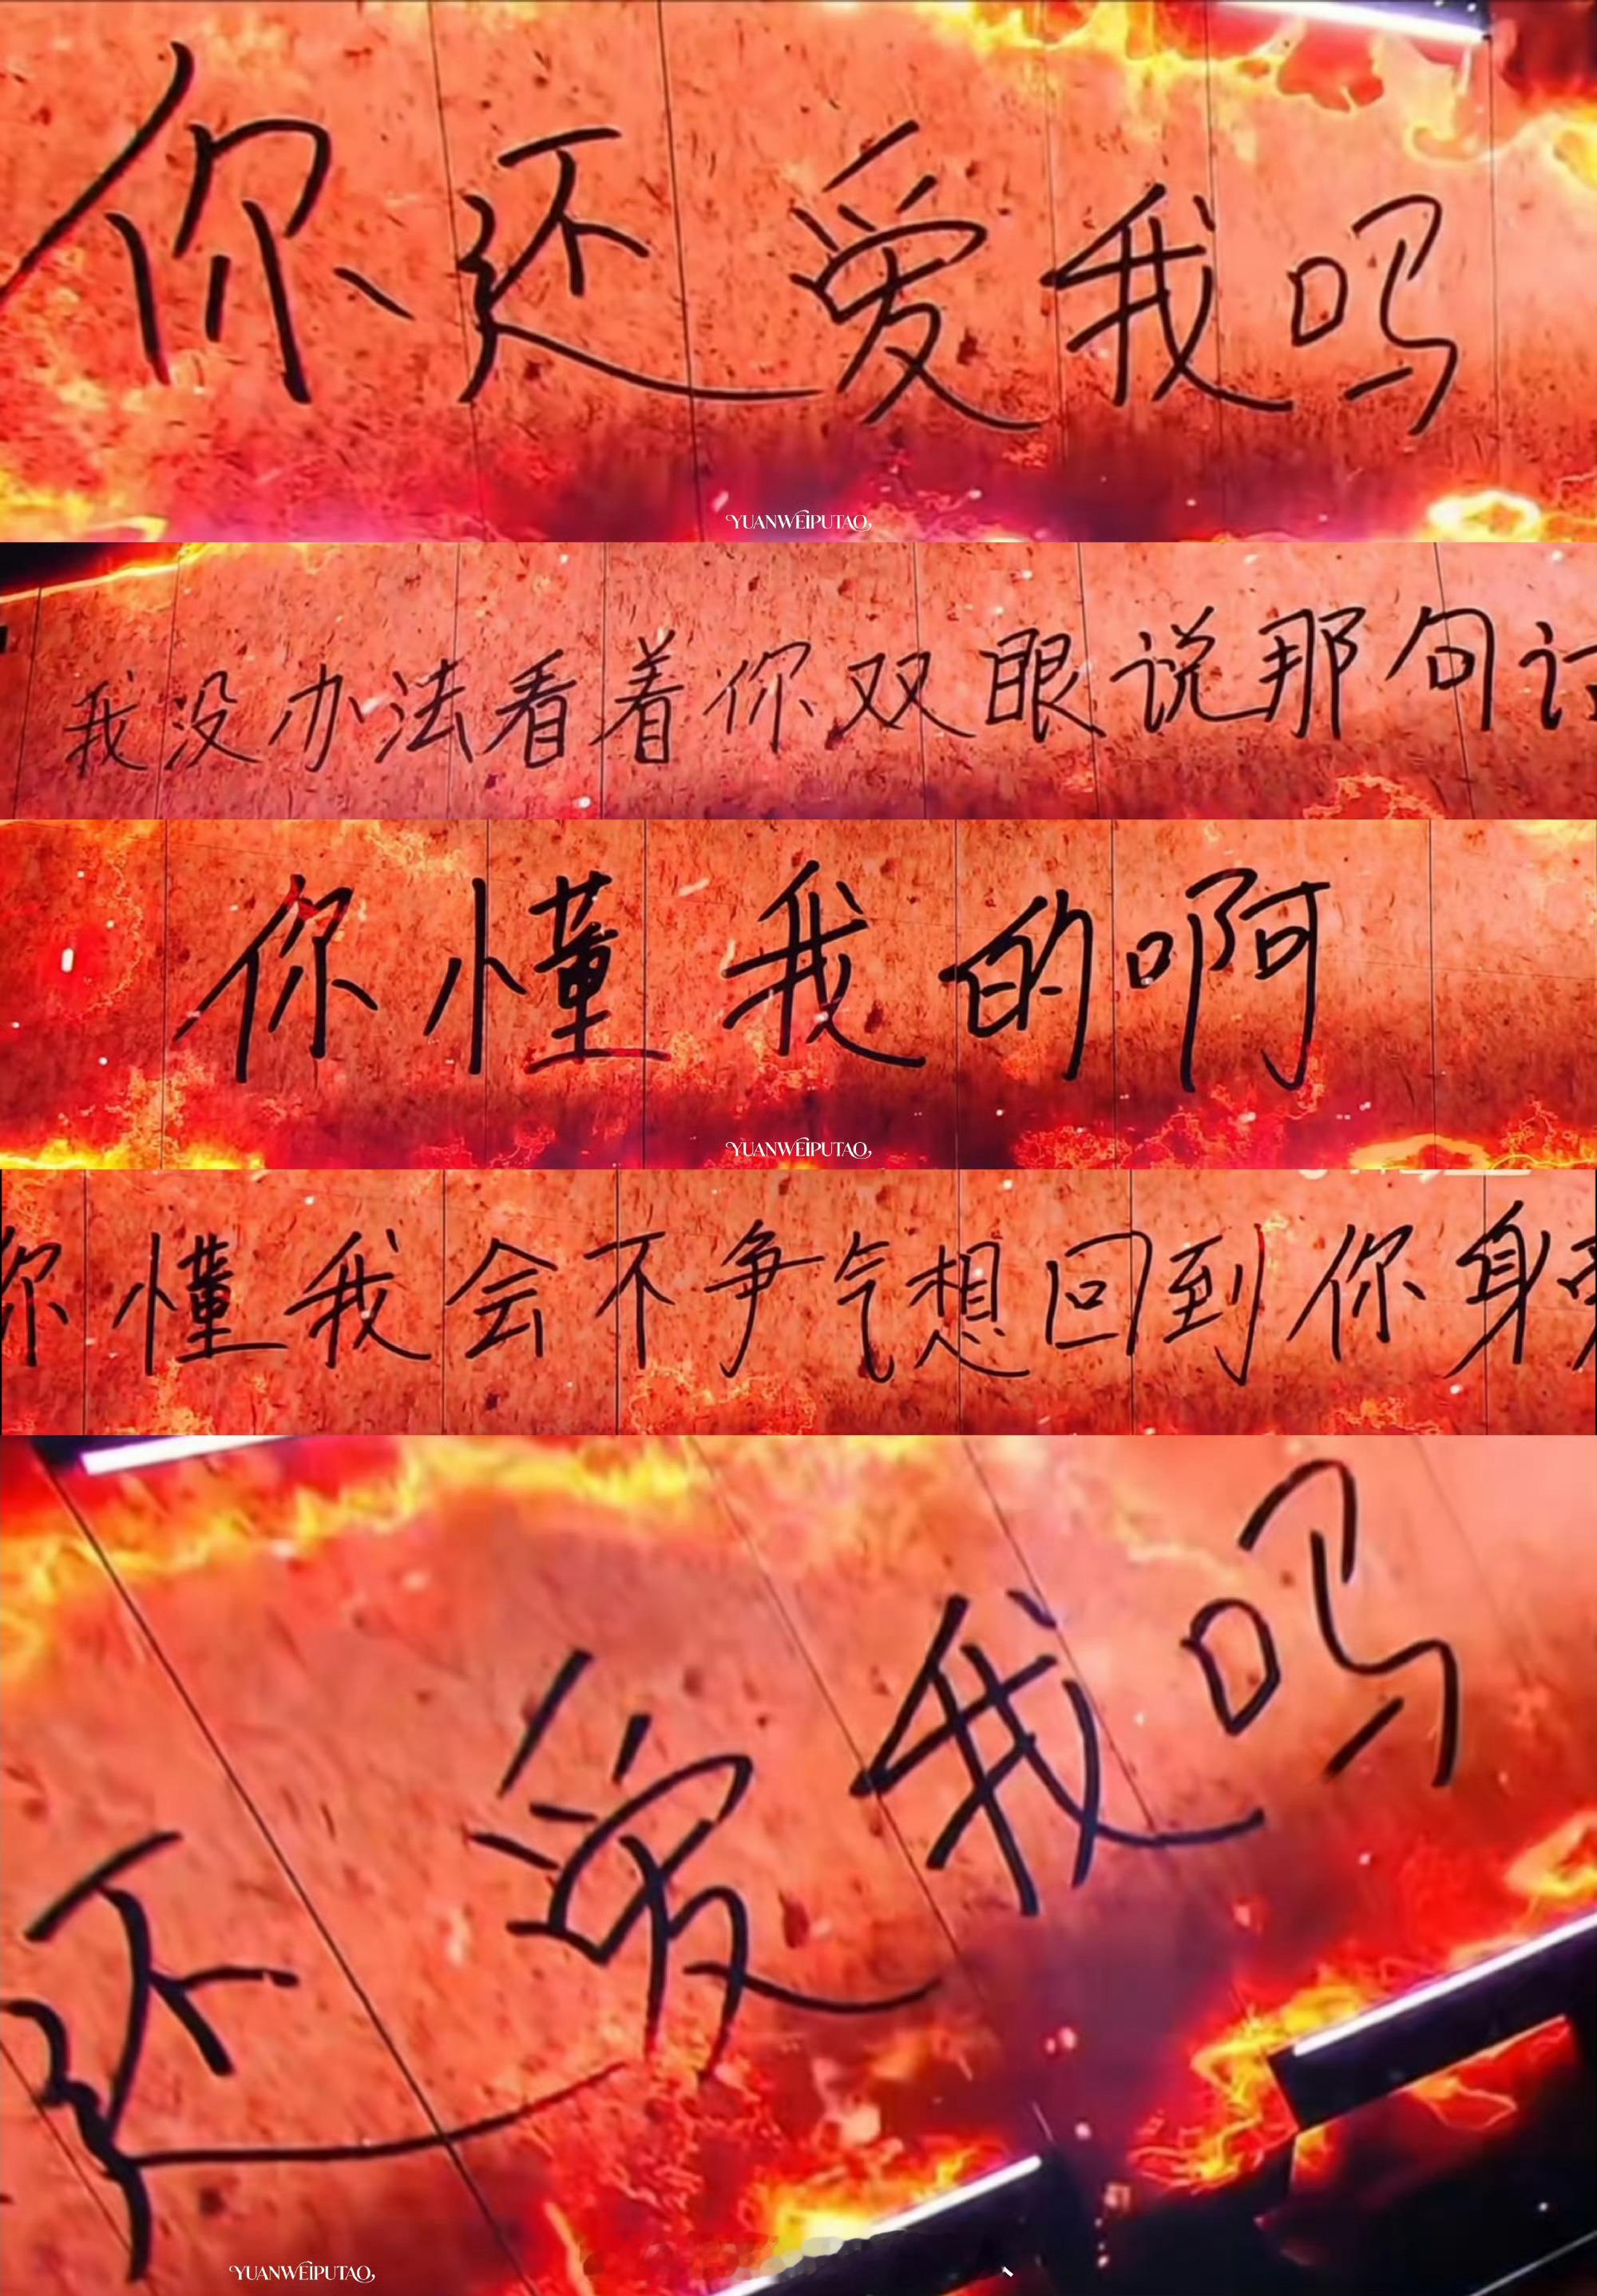 你还爱我吗
YUANWEIPUTAO
我没办法看着你双眼说那句
你懂我的啊
YUANWEIPUTAO
你懂我会不争气想回到你身
还爱我吗
YUANWEIPUTAO